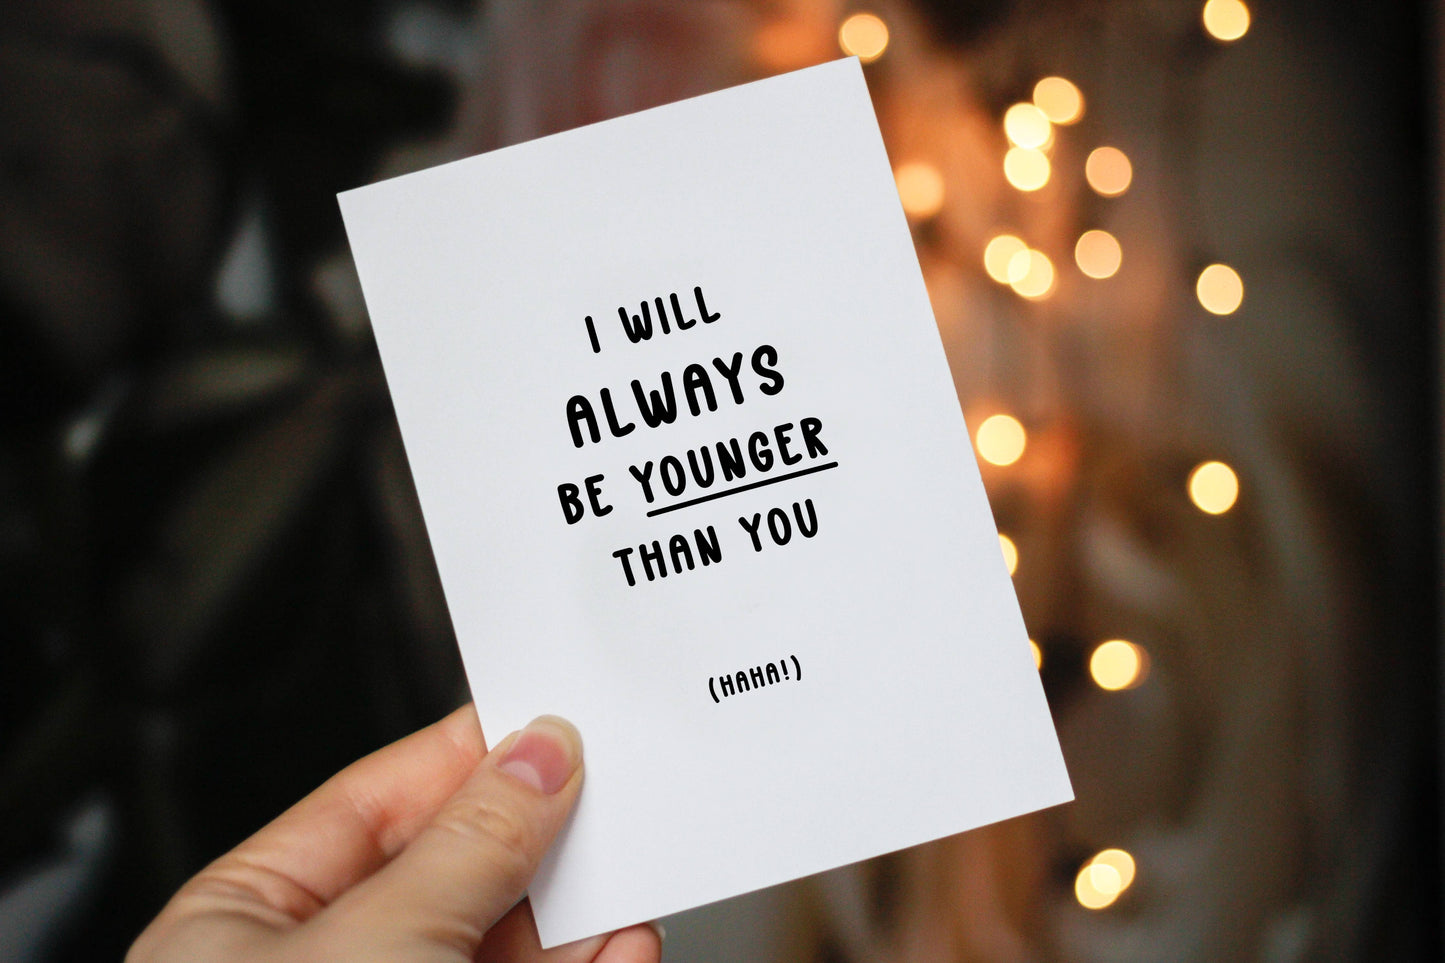 I WILL
ALWAYS
BE YOUNGER
THAN YOU
(HAHA!)